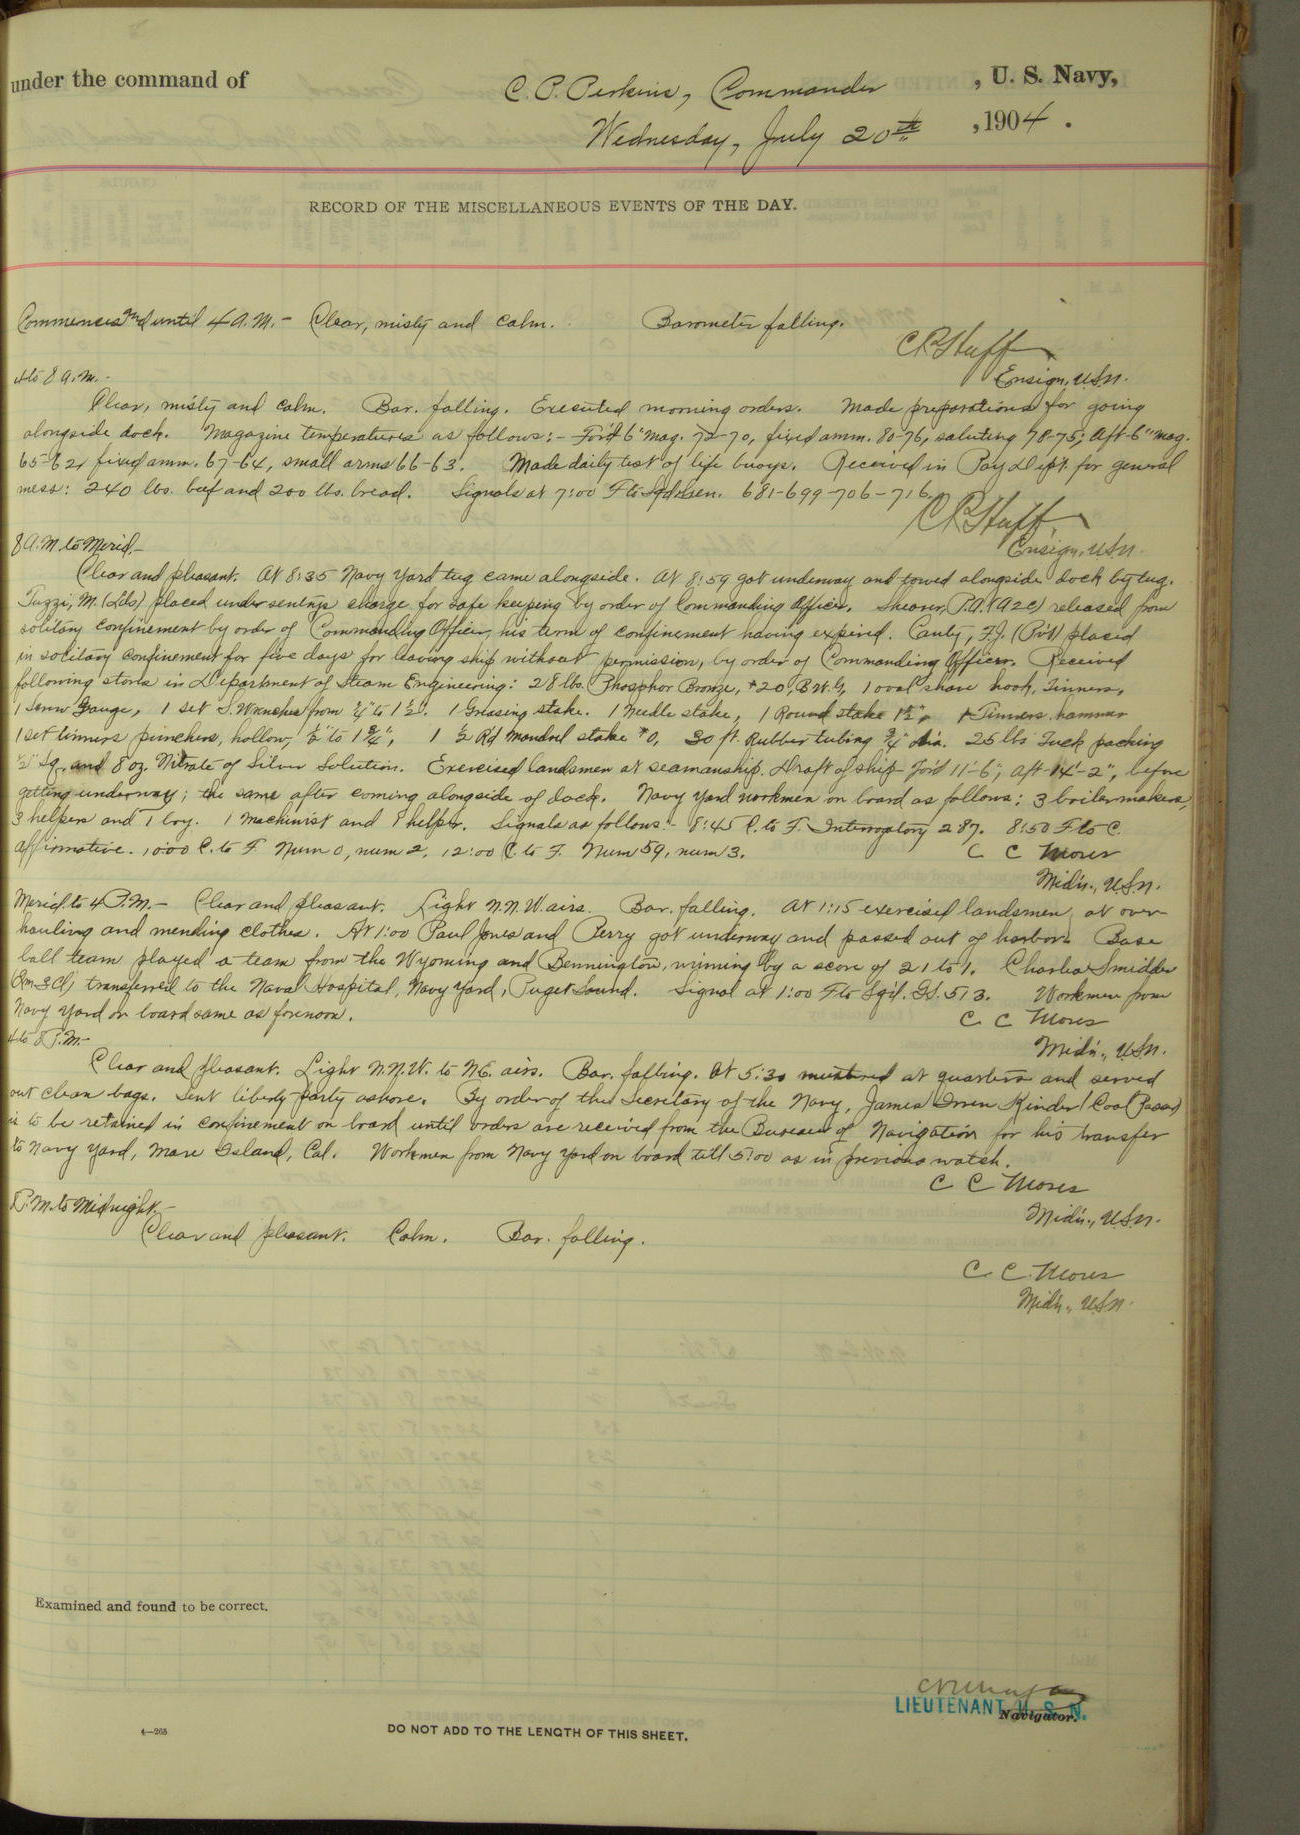 under the command of C. P. Perkins, Commander , U. S. Navy,
Wednesday, July 20th , 1904.
RECORD OF THE MISCELLANEOUS EVENTS OF THE DAY.
Commences and until 4 A.M.- Clear, misty and calm. Barometer falling.
C R Huff
Ensign, U.S.N.
4 to 8 A.M.-
Clear, misty and calm. Bar. falling. Executed morning orders. Made preparations for going
alongside dock. Magazine temperatures as follows:- For'd 6" mag. 72-70, fixed amm. 80-76, saluting 78-75; Aft 6" mag.
65-62, fixed amm. 67-64, small arms 66-63. Made daily test of life buoys. Received in Pay Dept. for general
mess: 240 lbs. beef and 200 lbs. bread. Signals at 7:00 F to 681-699-706-716.
C R Huff
Ensign, U.S.N.
8 A.M. to Merid.-
Clear and pleasant. At 8:35 Navy Yard tug came alongside. At 8:59 got underway and towed alongside dock by tug.
Tuzzi, M. (Lds) placed under sentry's charge for safe keeping by order of Commanding Officer. Shearer, P.A. (A2C) released from
solitary confinement by order of Commanding Officer, his term of confinement having expired. Canty, F.J. (Pvt) placed
in solitary confinement for five days for leaving ship without permission, by order of Commanding Officer. Received
following stores in Department of Steam Engineering: 28 lbs. Phosphor Bronze, #20, B.W.G, 1 oval shave hook, Tinners,
1 Screw Gauge, 1 set S. Wrenches from 1/4" to 1 1/2". 1 Creasing stake. 1 Needle stake, 1 Round stake 1 1/2", 1 Tinners hammer
1 set tinners punches, hollow, 1/2" to 1 3/4", 1 1/2 R'd Mandrel stake #0, 30 ft. Rubber tubing 3/4" dia. 25 lbs Tuck packing
1/2" sq. and 8 oz. Nitrate of Silver Solution. Exercised landsmen at seamanship. Draft of ship For'd 11'-6", aft 14'-2", before
getting underway; the same after coming alongside of dock. Navy Yard workmen on board as follows: 3 boilermakers,
3 helpers and 1 boy. 1 machinist and 1 helper. Signals as follows:- 8:45 C. to F. Interrogatory 287. 8:50 F to C.
affirmative. 10:00 C. to F. Num 0, num 2. 12:00 C. to F. Num 59, num 3.
C C Moses
Mid'n., U.S.N.
Merid. to 4 P.M.- Clear and pleasant. Light N.N.W. airs. Bar. falling. At 1:15 exercised landsmen at over-
hauling and mending clothes. At 1:00 Paul Jones and Perry got underway and passed out of harbor. Base
ball team played a team from the Wyoming and Bennington, winning by a score of 21 to 1. Charles Smidder
transferred to the Naval Hospital, Navy Yard, Puget Sound. Signal at 1:00 F to G.S. 513. Workmen from
Navy Yard on board same as forenoon.
C C Moses
Mid'n., U.S.N.
4 to 8 P.M.-
Clear and pleasant. Light N.N.W. to N.E. airs. Bar. falling. At 5:30 mustered at quarters and served
out clean bags. Sent liberty party ashore. By order of the Secretary of the Navy, James Kinder (Coal Passer)
is to be retained in confinement on board until orders are received from the Bureau of Navigation for his transfer
to Navy Yard, Mare Island, Cal. Workmen from Navy Yard on board till 5:00 as in previous watch.
C C Moses
Mid'n., U.S.N.
8 P.M. to Midnight.-
Clear and pleasant. Calm. Bar. falling.
C. C. Moses
Mid'n., U.S.N.
Examined and found to be correct.
LIEUTENANT, U. S. N.
Navigator.
4—265
DO NOT ADD TO THE LENGTH OF THIS SHEET.